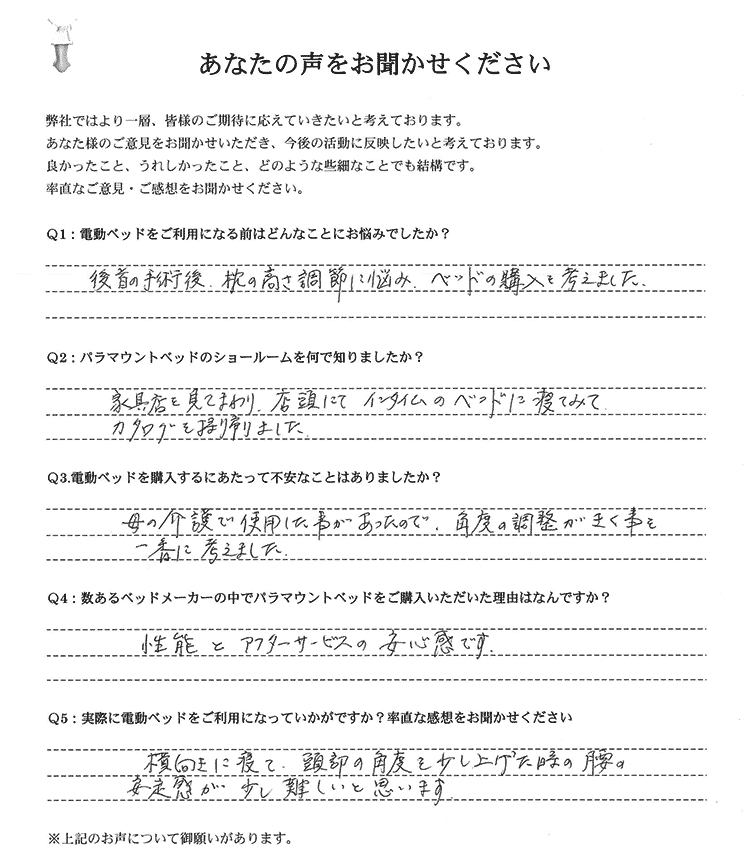 あなたの声をお聞かせください
弊社ではより一層、皆様のご期待に応えていきたいと考えております。
あなた様のご意見をお聞かせいただき、今後の活動に反映したいと考えております。
良かったこと、うれしかったこと、どのような些細なことでも結構です。
率直なご意見・ご感想をお聞かせください。
Q1：電動ベッドをご利用になる前はどんなことにお悩みでしたか？
後首の手術後、枕の高さ調節に悩み、ベッドの購入を考えました。
Q2：パラマウントベッドのショールームを何で知りましたか？
家具店を見てまわり、店頭にてインタイムのベッドに寝てみて
カタログを持り帰りました。
Q3.電動ベッドを購入するにあたって不安なことはありましたか？
母の介護で使用した事があったので、角度の調整がきく事を
一番に考えました。
Q4：数あるベッドメーカーの中でパラマウントベッドをご購入いただいた理由はなんですか？
性能とアフターサービスの安心感です。
Q5：実際に電動ベッドをご利用になっていかがですか？率直な感想をお聞かせください
横向きに寝て、頭部の角度を少し上げた時の腰の
安定感が少し難しいと思います。
※上記のお声について御願いがあります。